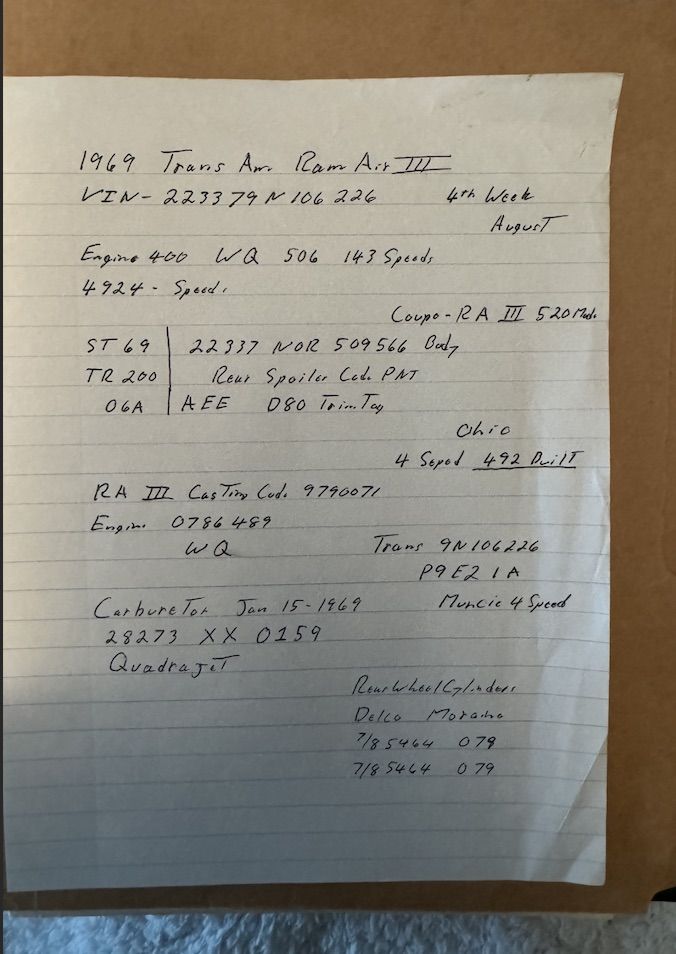 1969 Trans Am. Ram Air III
VIN- 223379N106226
4th Week
August
Engine 400 WQ 506 143 Speeds
4924 - Speed.
Coupo - RA III 520 Made
ST 69 22337 NOR 509566 Body
TR 200 Rear Spoiler Code PNT
06A AEE D80 Trim Tag
Ohio
4 Seped 492 Built
RA III Casting Code 9790071
Engine 0786489
WQ
Trans 9N106226
P9E21A
Muncie 4 Speed
Carburetor Jan 15-1969
28273 XX 0159
Quadrajet
Rear Wheel Cylinders
Delco Moraine
7/8 5464 079
7/8 5464 079